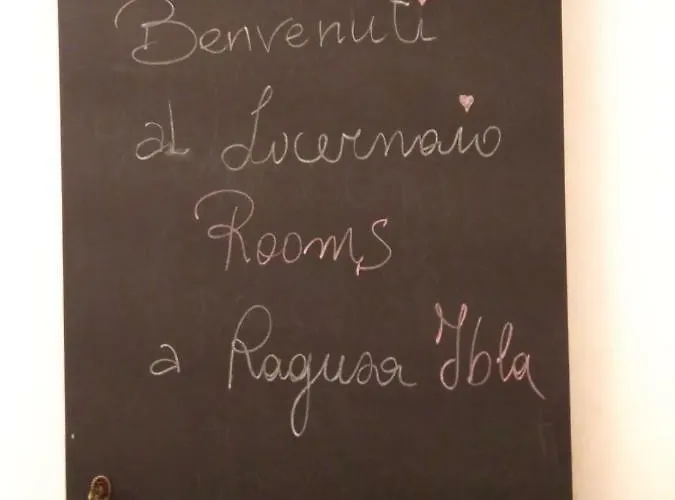 Benvenuti
al Lucernaio
Rooms
a Ragusa Ibla